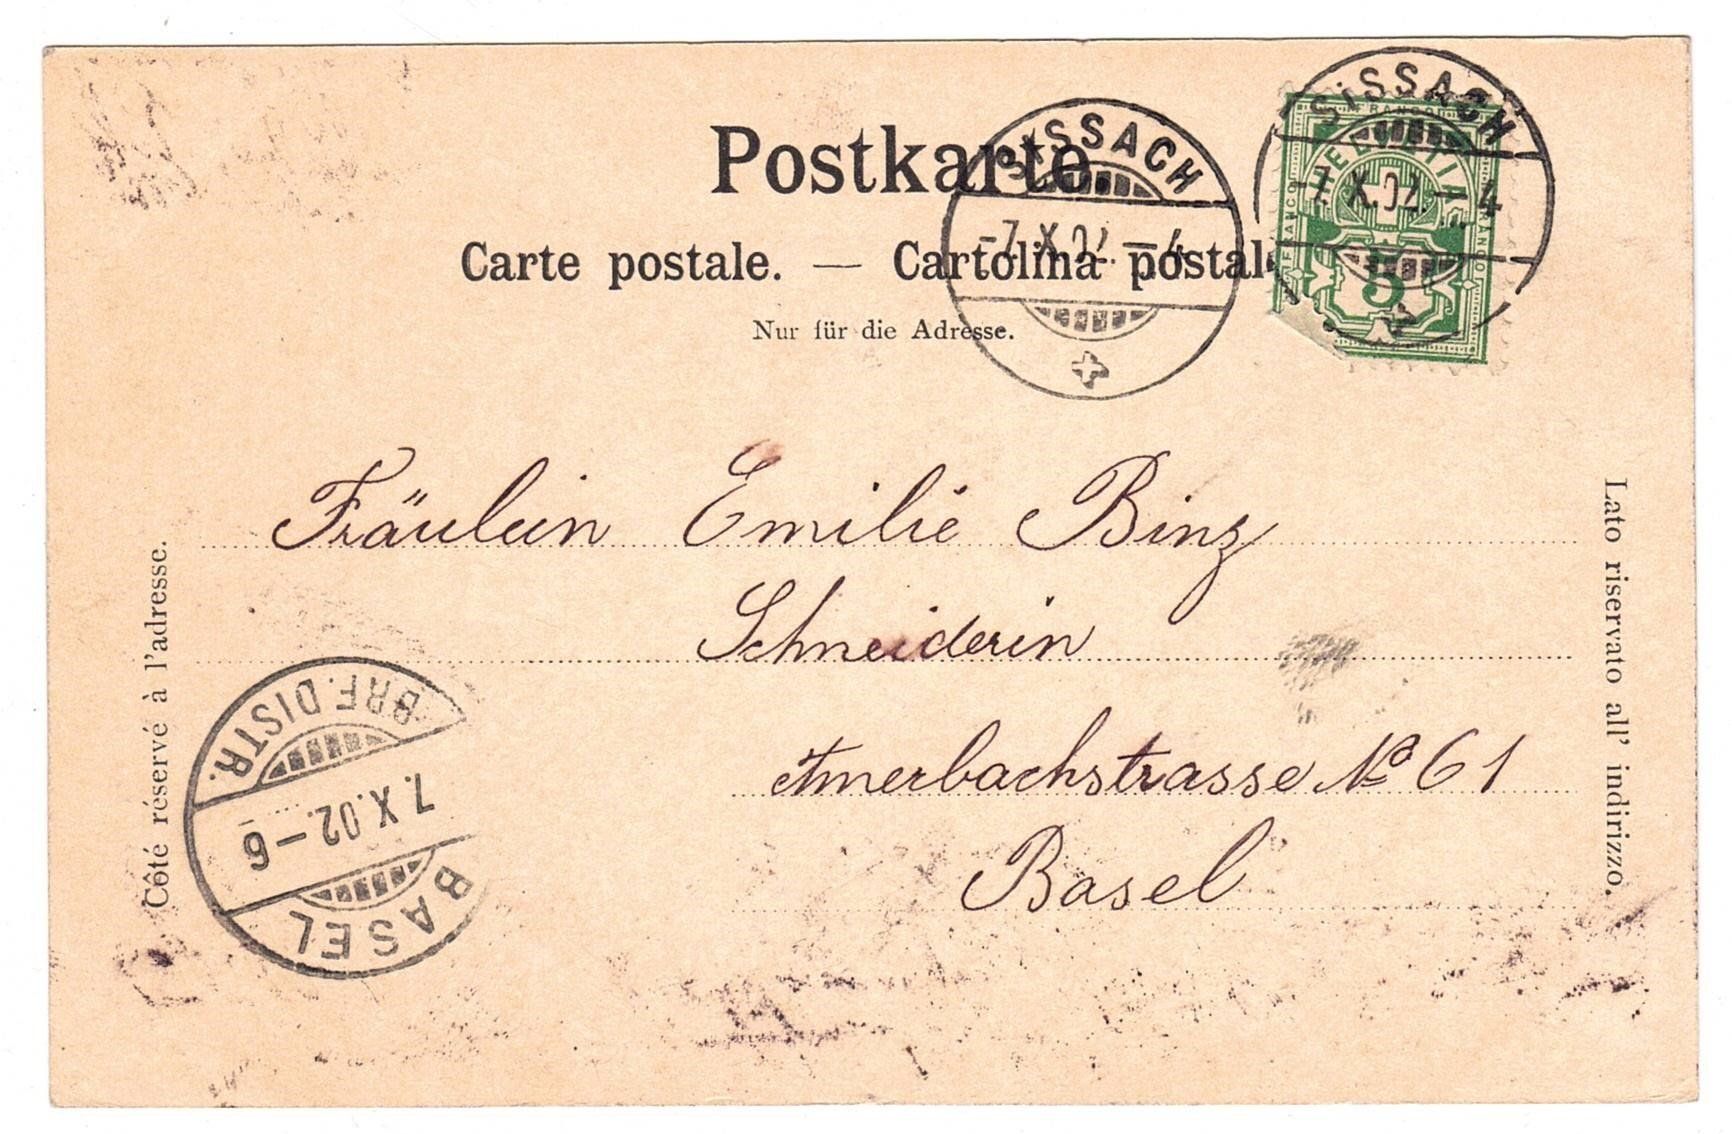 Postkarte.
SISSACH
-7.X.02.-4
SISSACH
-7.X.02.-4
FRANCO
HELVETIA
FRANCO
FRANCO
5
Carte postale. — Cartolina postal
Nur für die Adresse.
Fräulein Emilie Binz
Schneiderin
Amerbachstrasse No 61
Basel
Côté réservé à l'adresse.
Lato riservato all' indirizzo.
BRF. DISTR.
7.X.02.-6
BASEL